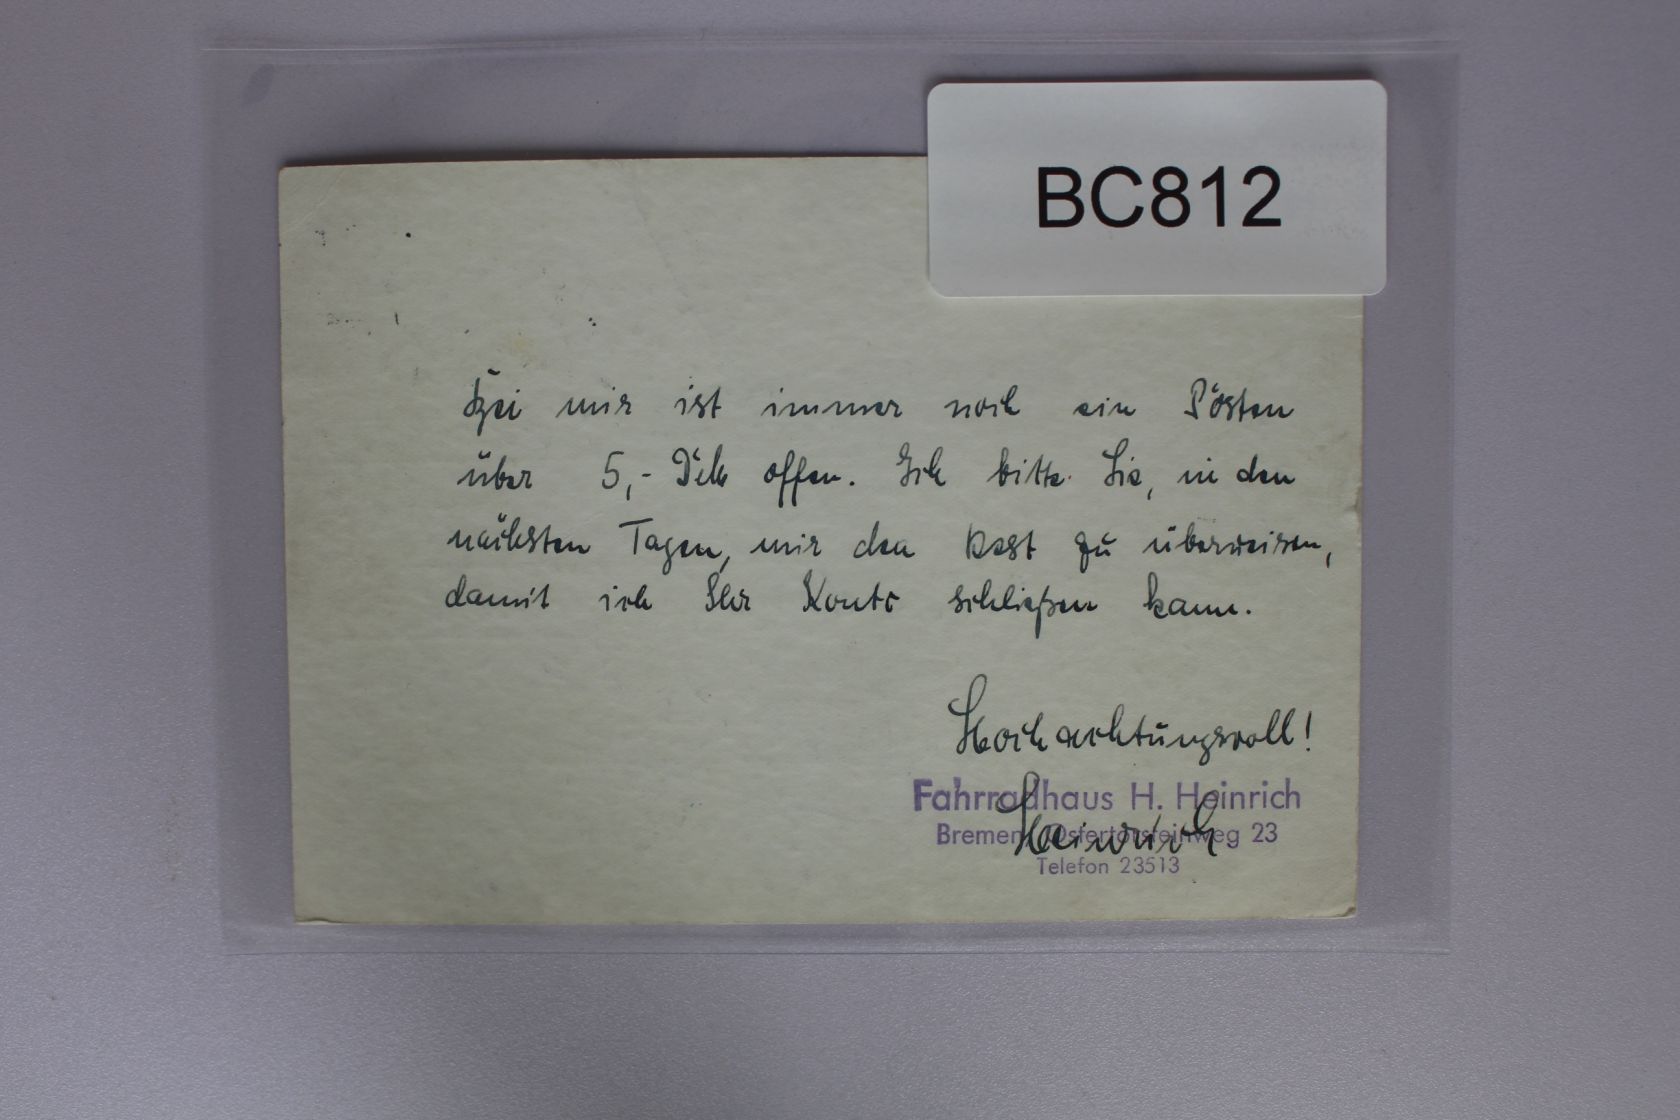 BC812
Bei mir ist immer noch ein Posten
über 5,- DM offen. Ich bitte Sie, in den
nächsten Tagen, mir den Rest zu überweisen,
damit ich Ihr Konto schließen kann.
Hochachtungsvoll!
Fahrradhaus H. Heinrich
Heinrich
Bremen, Ostertorsteinweg 23
Telefon 23513